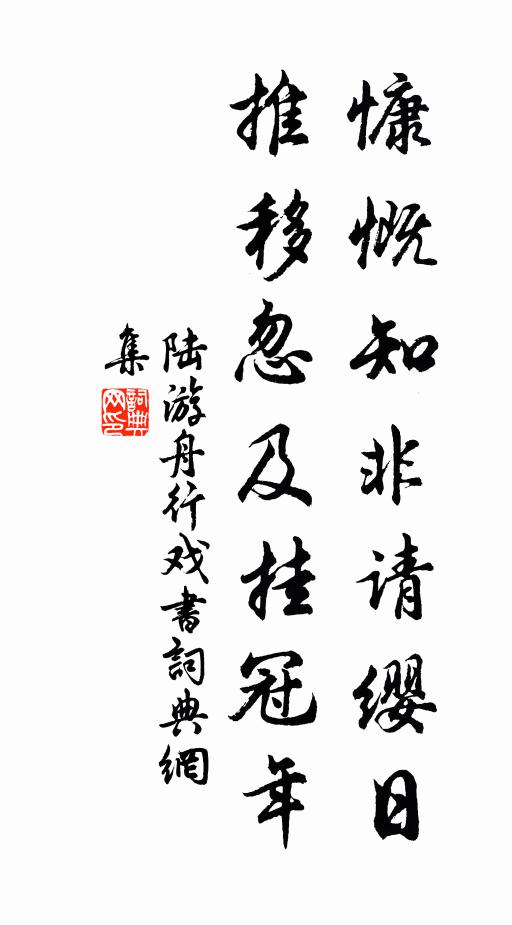 慷慨知非请缨日
推移忽及挂冠年
陆游舟行戏書詞典網
集
詞典
网印